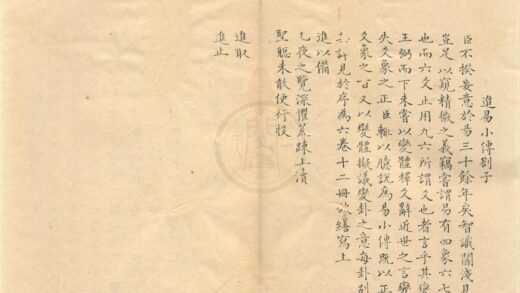 進易小傳劄子
臣不揆妄意於易三十餘年矣智識闇淺見
豈足以窺精微之義竊嘗謂易有四象六七
也而六爻止用九六所謂爻也者言乎其變
王弼而下未嘗以變體釋爻辭近世之言變
失爻象之正臣輒以臆說為易小傳既以正
爻象之旨又以變體擬議變卦之意每卦別
其詳見於序為六卷十二冊欲繕寫上
進以備
乙夜之覽深懼荒疎上瀆
聖聰未敢便行投
進取
進止